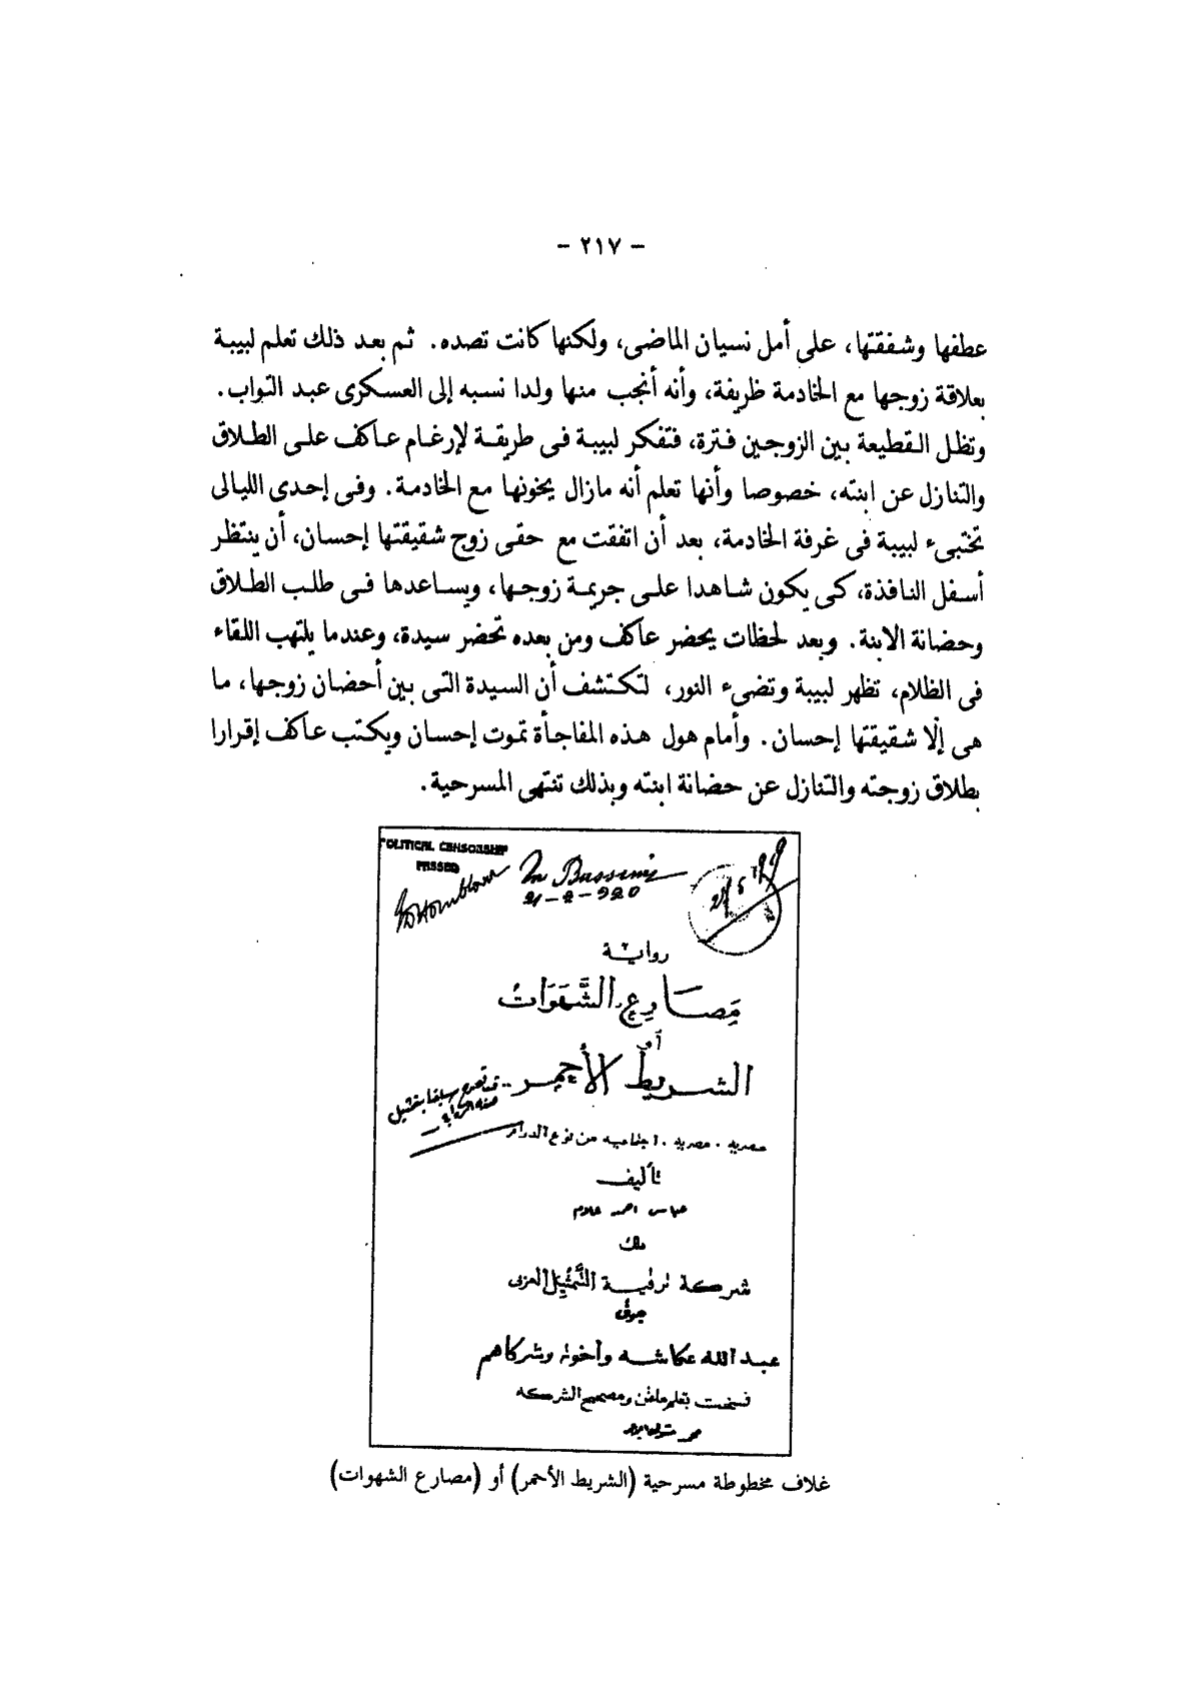 - ٢١٧ -
عطفها وشفقتها، على أمل نسيان الماضى، ولكنها كانت تصده. ثم بعد ذلك تعلم لبيبة
بعلاقة زوجها مع الخادمة ظريفة، وأنه أنجب منها ولدا نسبه إلى العسكرى عبد التواب.
وتظل القطيعة بين الزوجين فترة، فتفكر لبيبة فى طريقة لإرغام عاكف على الطلاق
والتنازل عن ابنته، خصوصا وأنها تعلم أنه مازال يخونها مع الخادمة. وفى إحدى الليالى
تختبىء لبيبة فى غرفة الخادمة، بعد أن اتفقت مع حقى زوج شقيقتها إحسان، أن ينتظر
أسفل النافذة، كى يكون شاهدا على جريمة زوجها، ويساعدها فى طلب الطلاق
وحضانة الابنة. وبعد لحظات يحضر عاكف ومن بعده تحضر سيدة، وعندما يلتهب اللقاء
فى الظلام، تظهر لبيبة وتضىء النور، لتكتشف أن السيدة التى بين أحضان زوجها، ما
هى إلّا شقيقتها إحسان. وأمام هول هذه المفاجأة تموت إحسان ويكتب عاكف إقرارا
بطلاق زوجته والتنازل عن حضانة ابنته وبذلك تنتهى المسرحية.
POLITICAL CENSORSHIP
PASSED
21-2-920
رواية
مَصَارِع الشَّهَوَات
أو
الشريط الأحمر
مصرية . مصرية . اجتماعية من نوع الدرام
تأليف
عباس احمد علام
ملك
شركة ترقية التمثيل العربى
جوق
عبد الله عكاشه وأخوته وشركاهم
نسخت بقلم ملقن ومصحح الشركه
غلاف مخطوطة مسرحية (الشريط الأحمر) أو (مصارع الشهوات)